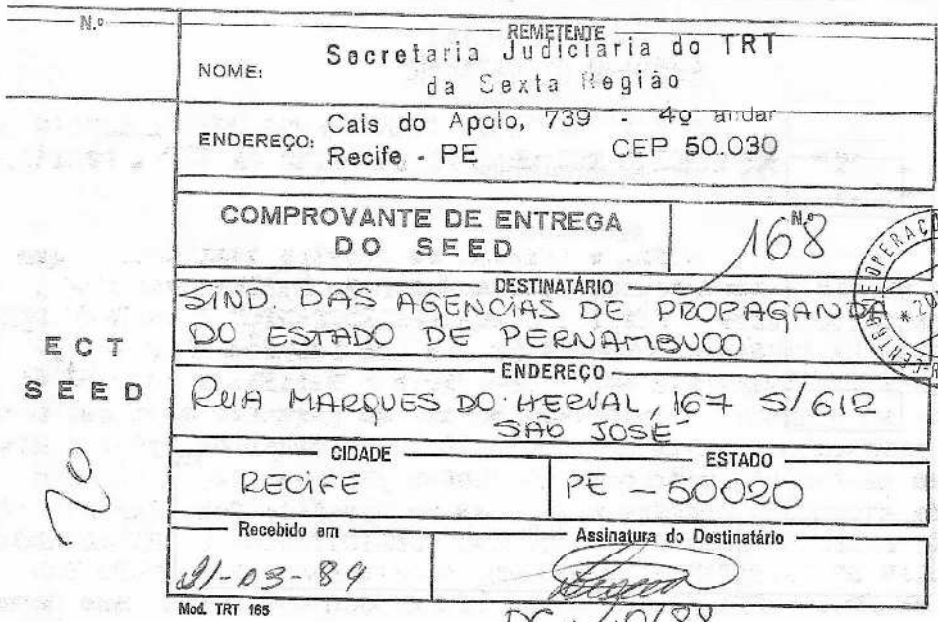 N.º
REMETENTE
NOME: Secretaria Judiciaria do TRT
da Sexta Região
ENDEREÇO: Cais do Apolo, 739 - 4º andar
Recife - PE CEP 50.030
COMPROVANTE DE ENTREGA
DO SEED
N.º
168
DESTINATÁRIO
SIND. DAS AGENCIAS DE PROPAGANDA
DO ESTADO DE PERNAMBUCO
ECT
SEED
20
ENDEREÇO
RUA MARQUES DO HERVAL, 167 S/612
SÃO JOSE
CIDADE
RECIFE
ESTADO
PE - 50020
Recebido em
21-03-89
Assinatura do Destinatário
Mod. TRT 165